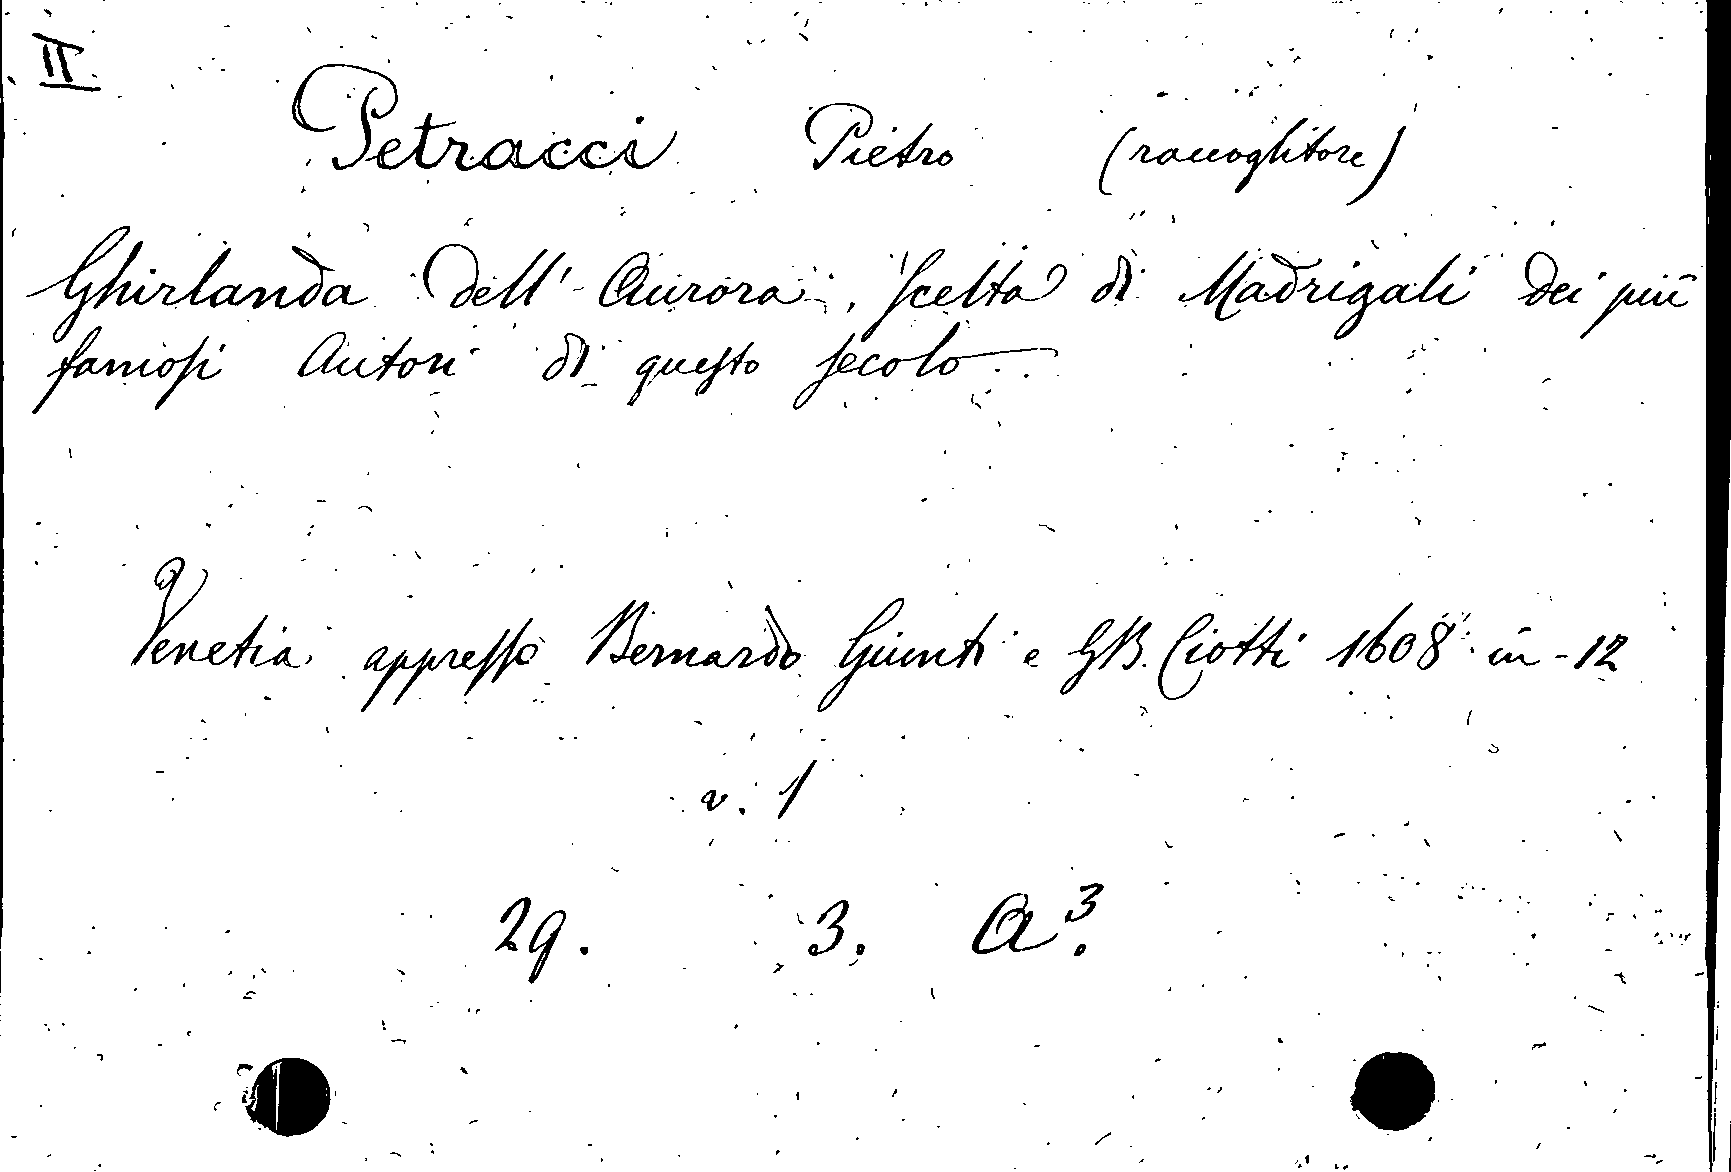 II
Petracci Pietro (raccoglitore)
Ghirlanda dell' Aurora, Scelta di Madrigali dei più
famosi Autori di questo secolo
Venetia appresso Bernardo Giunti e GB. Ciotti 1608 in-12
v. 1
29. 3. A³.